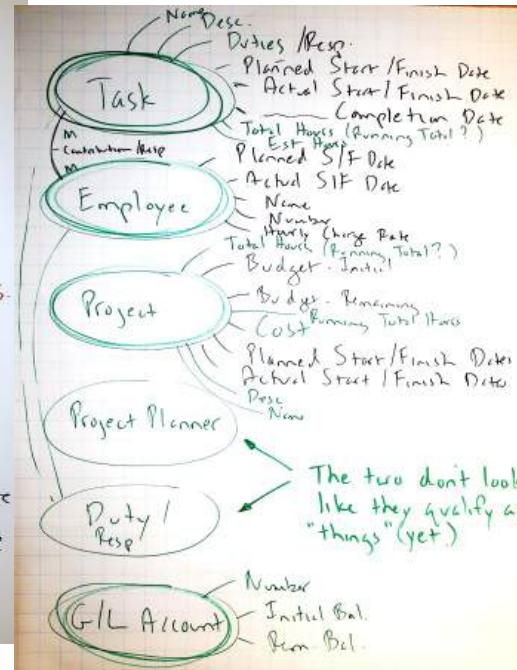 Name
Desc.
Duties / Resp.
Planned Start / Finish Date
Actual Start / Finish Date
Completion Date
Task
Total Hours (Running Total?)
Est Hours
M
Contribution / Resp
M
Planned S/F Date
Actual S/F Date
Employee
Name
Number
Hourly Charge Rate
Total Hours (Running Total?)
Budget - Initial
Project
Budget - Remaining
Running Total Hours
Cost
Planned Start / Finish Dates
Actual Start / Finish Dates
Desc
Name
Project Planner
The two don't look
like they qualify a
"things" (yet)
Duty /
Resp
Number
G/L Account
Initial Bal.
Rem. Bal.